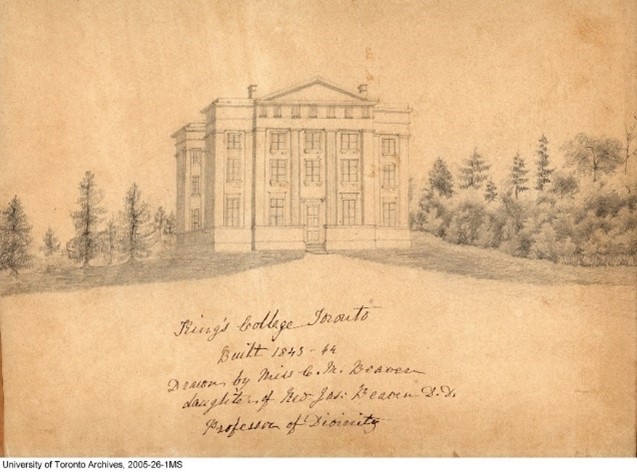 King's College Toronto
Built 1843-44
Drawn by Miss C. M. Beaven
daughter of Rev. Jas. Beaven D.D.
Professor of Divinity
University of Toronto Archives, 2005-26-1MS